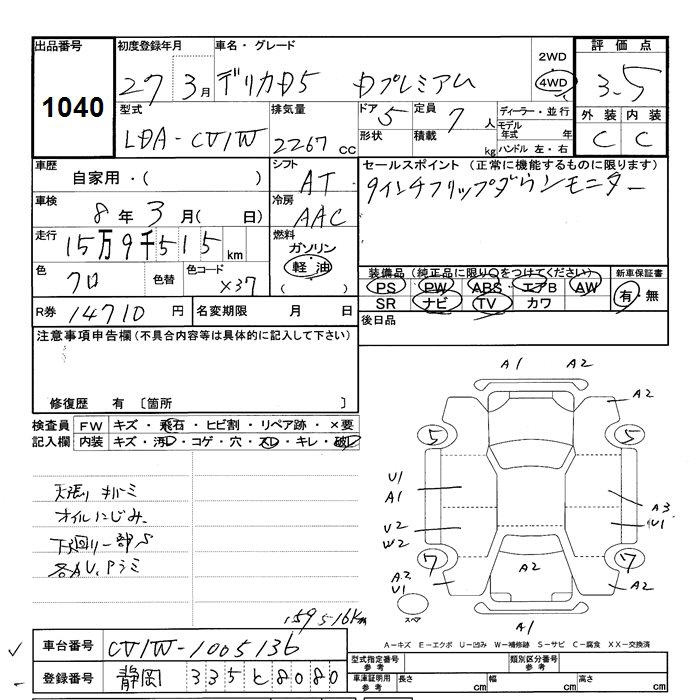 出品番号 初度登録年月 車名・グレード 2WD 評価点
1040 27 3月 デリカD5 Dプレミアム 4WD 3.5
型式 排気量 ドア 5 定員 7人 ディーラー・並行 外装 内装
LDA-CV1W 2267cc 形状 積載 kg モデル年式 年 C C
ハンドル 左・右
車歴 自家用・( ) シフト AT セールスポイント (正常に機能するものに限ります)
9インチフリップダウンモニター
車検 8年3月( 日) 冷房 AAC
走行 15万9千515km 燃料 ガソリン
軽・油
( )
色 クロ 色替 色コード X37
装備品(純正品に限り○をつけてください) 新車保証書
PS PW ABS エアB AW 有・無
SR ナビ TV カワ
R券 14710円 名変期限 月 日 後日品
注意事項申告欄(不具合内容等は具体的に記入して下さい)
修復歴 有 〔箇所 〕
検査員 FW キズ・飛石・ヒビ割・リペア跡・×要
記入欄 内装 キズ・汚レ・コゲ・穴・スレ・キレ・破レ
オイルにじみ
下回り一部S
A1 A2
A2
5 5
U1
A1
A3
U1
U2
W2
7 7
A2
A2
U1
A2
スペア
A1
A-キズ E-エクボ U-凹み W-補修跡 S-サビ C-腐食 XX-交換済
車台番号 CV1W-1005136
登録番号 静岡 335 と 8080
型式指定番号 参考 類別区分番号 参考
車庫証明用 参考 長さ cm 幅 cm 高さ cm